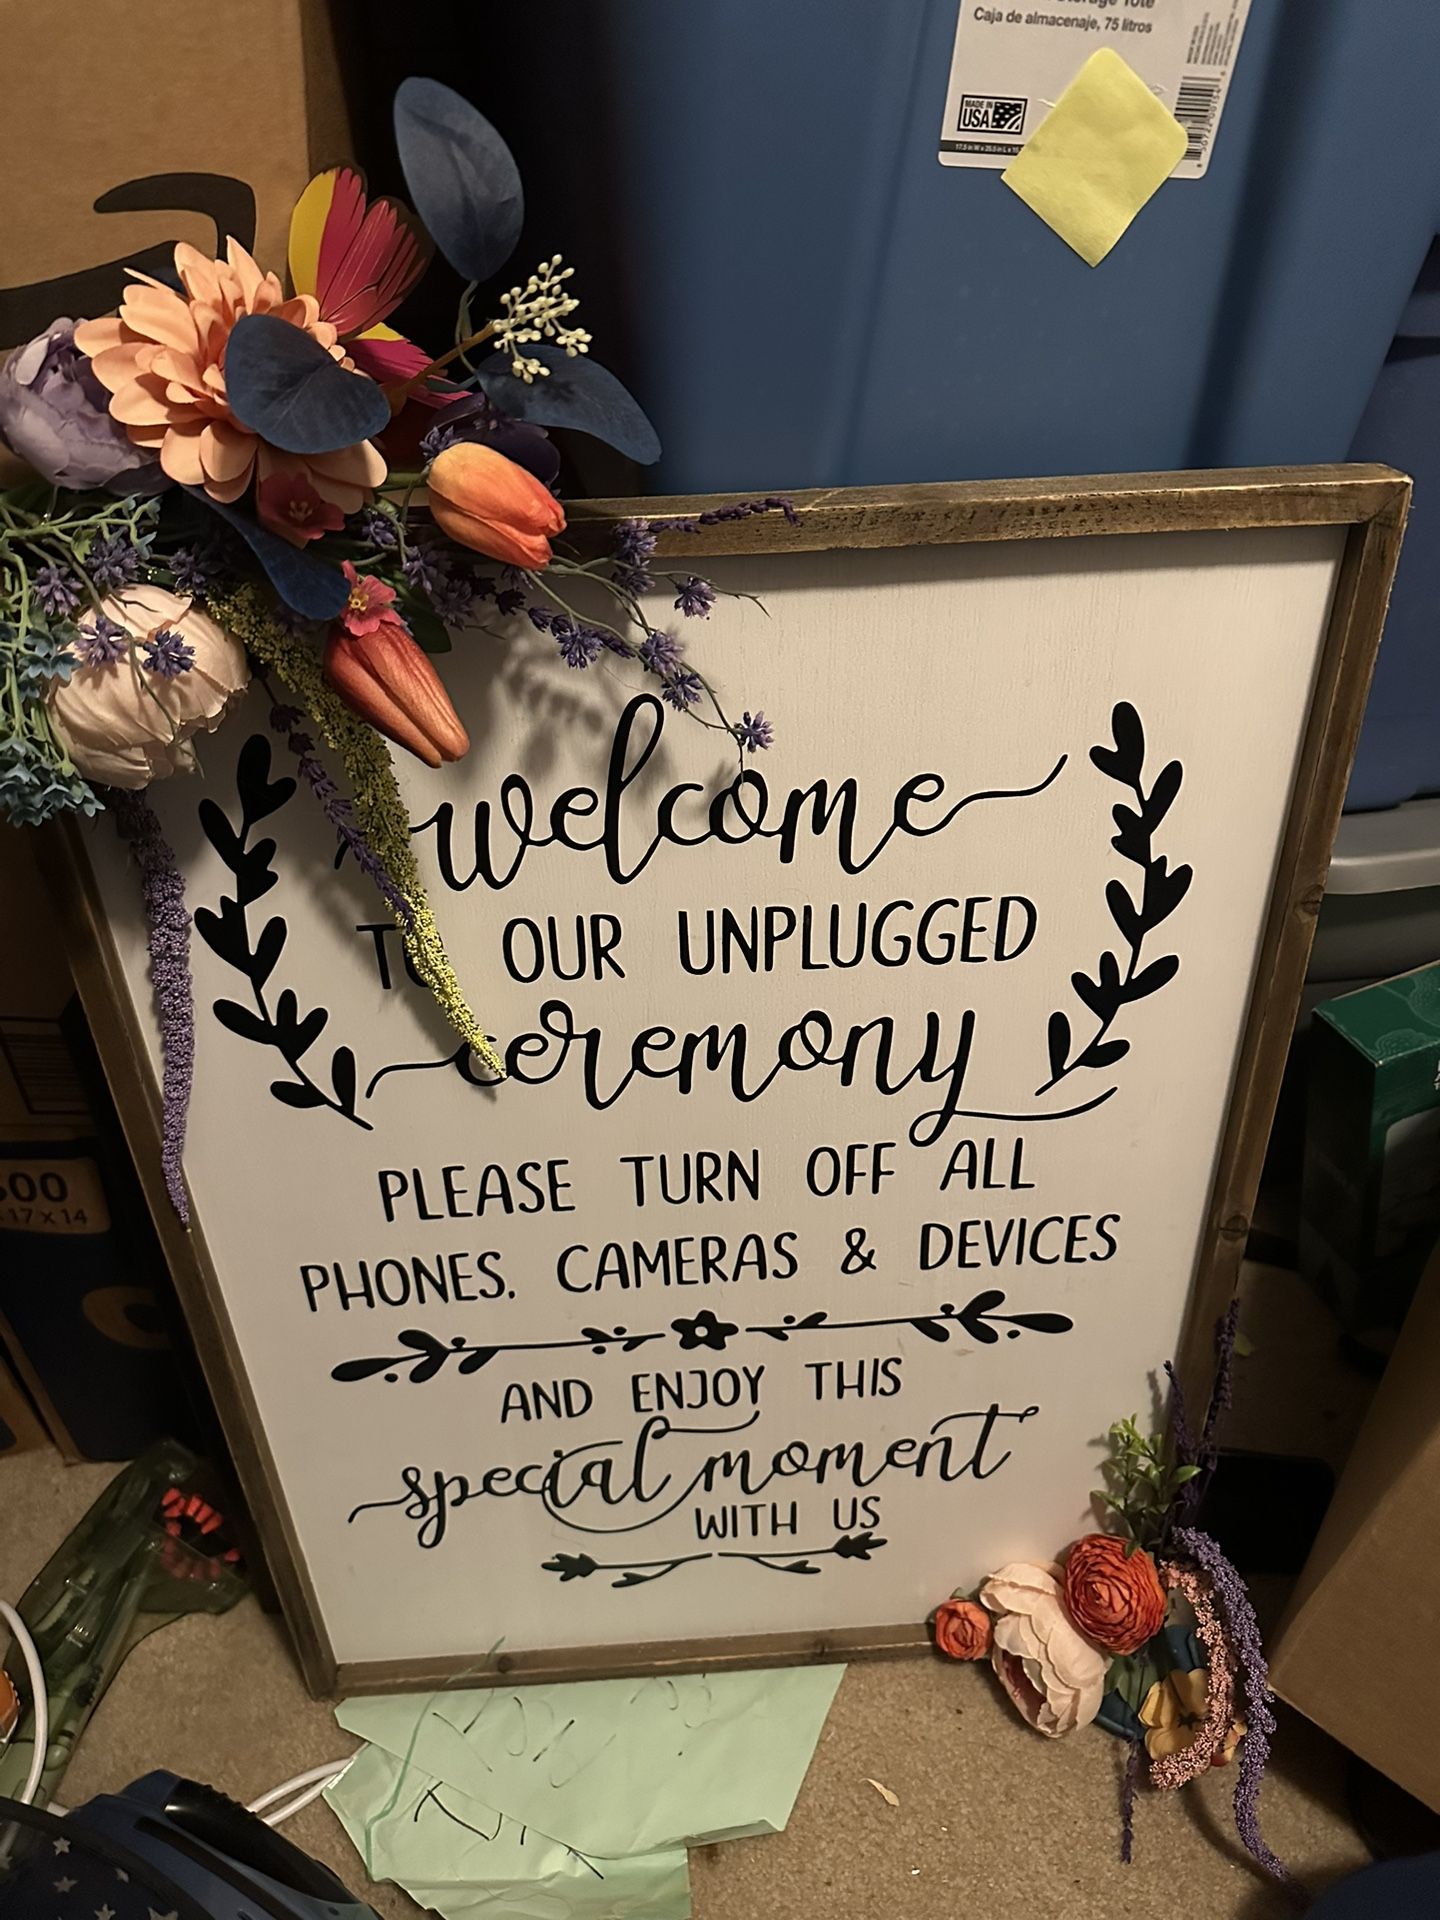 Storage Tote
Caja de almacenaje, 75 litros
MADE IN
USA
welcome
TO OUR UNPLUGGED
ceremony
PLEASE TURN OFF ALL
PHONES, CAMERAS & DEVICES
AND ENJOY THIS
special moment
WITH US
17 x 14